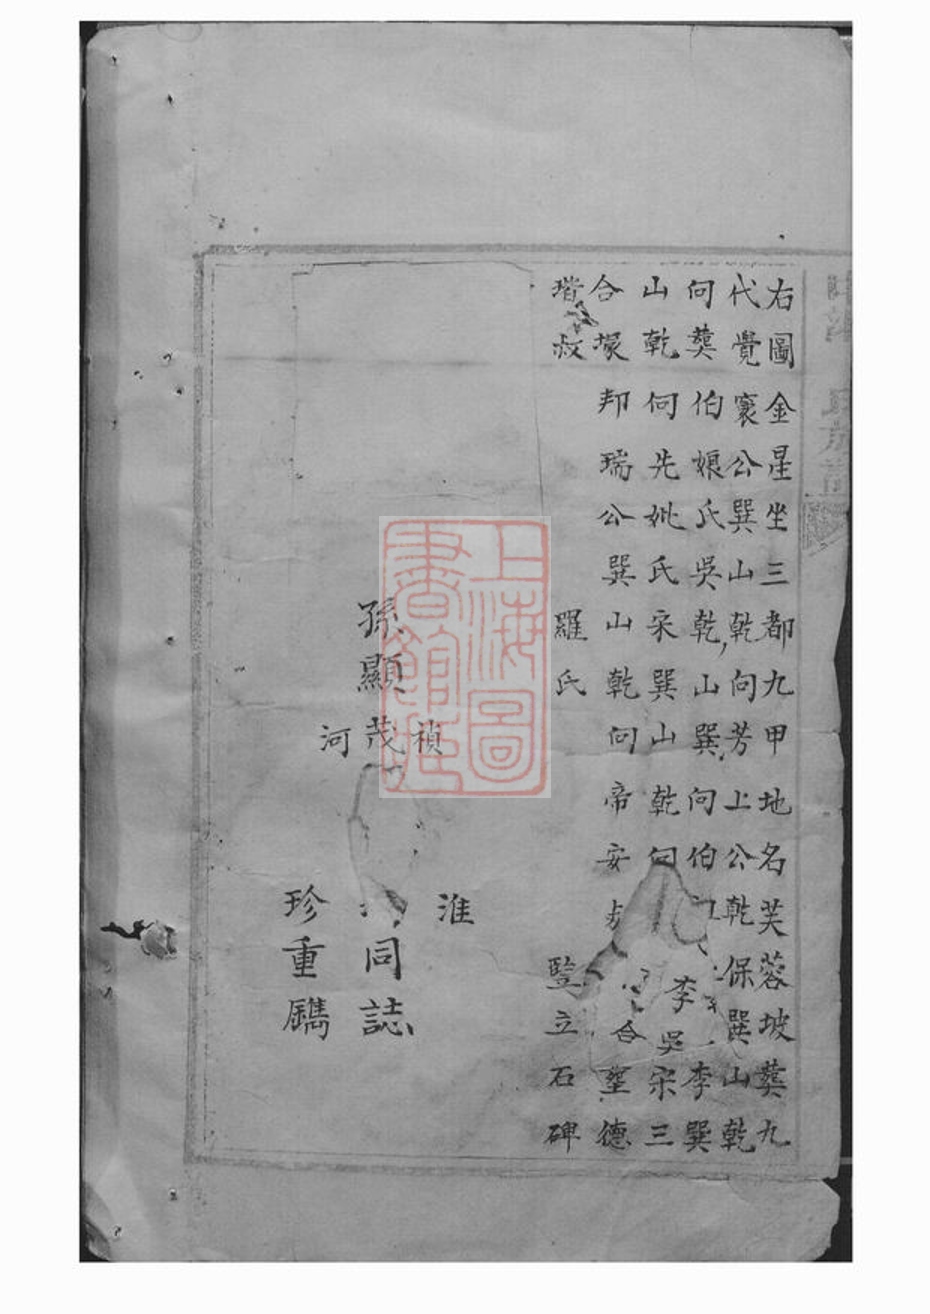 右圖金星坐三都九甲地名芙蓉坡塟九
代覺寰公巽山乾向芳上公乾保巽山乾
向塟伯娘氏吳乾山巽向伯李巽
山乾向先妣氏宋巽山乾向李吳宋三
合塚邦瑞公巽山乾向帝安合塋德
瑎叔羅氏豎立石碑
淮
禎
孫顯茂同誌
河
珍重鐫
氏族譜
上海圖書館藏